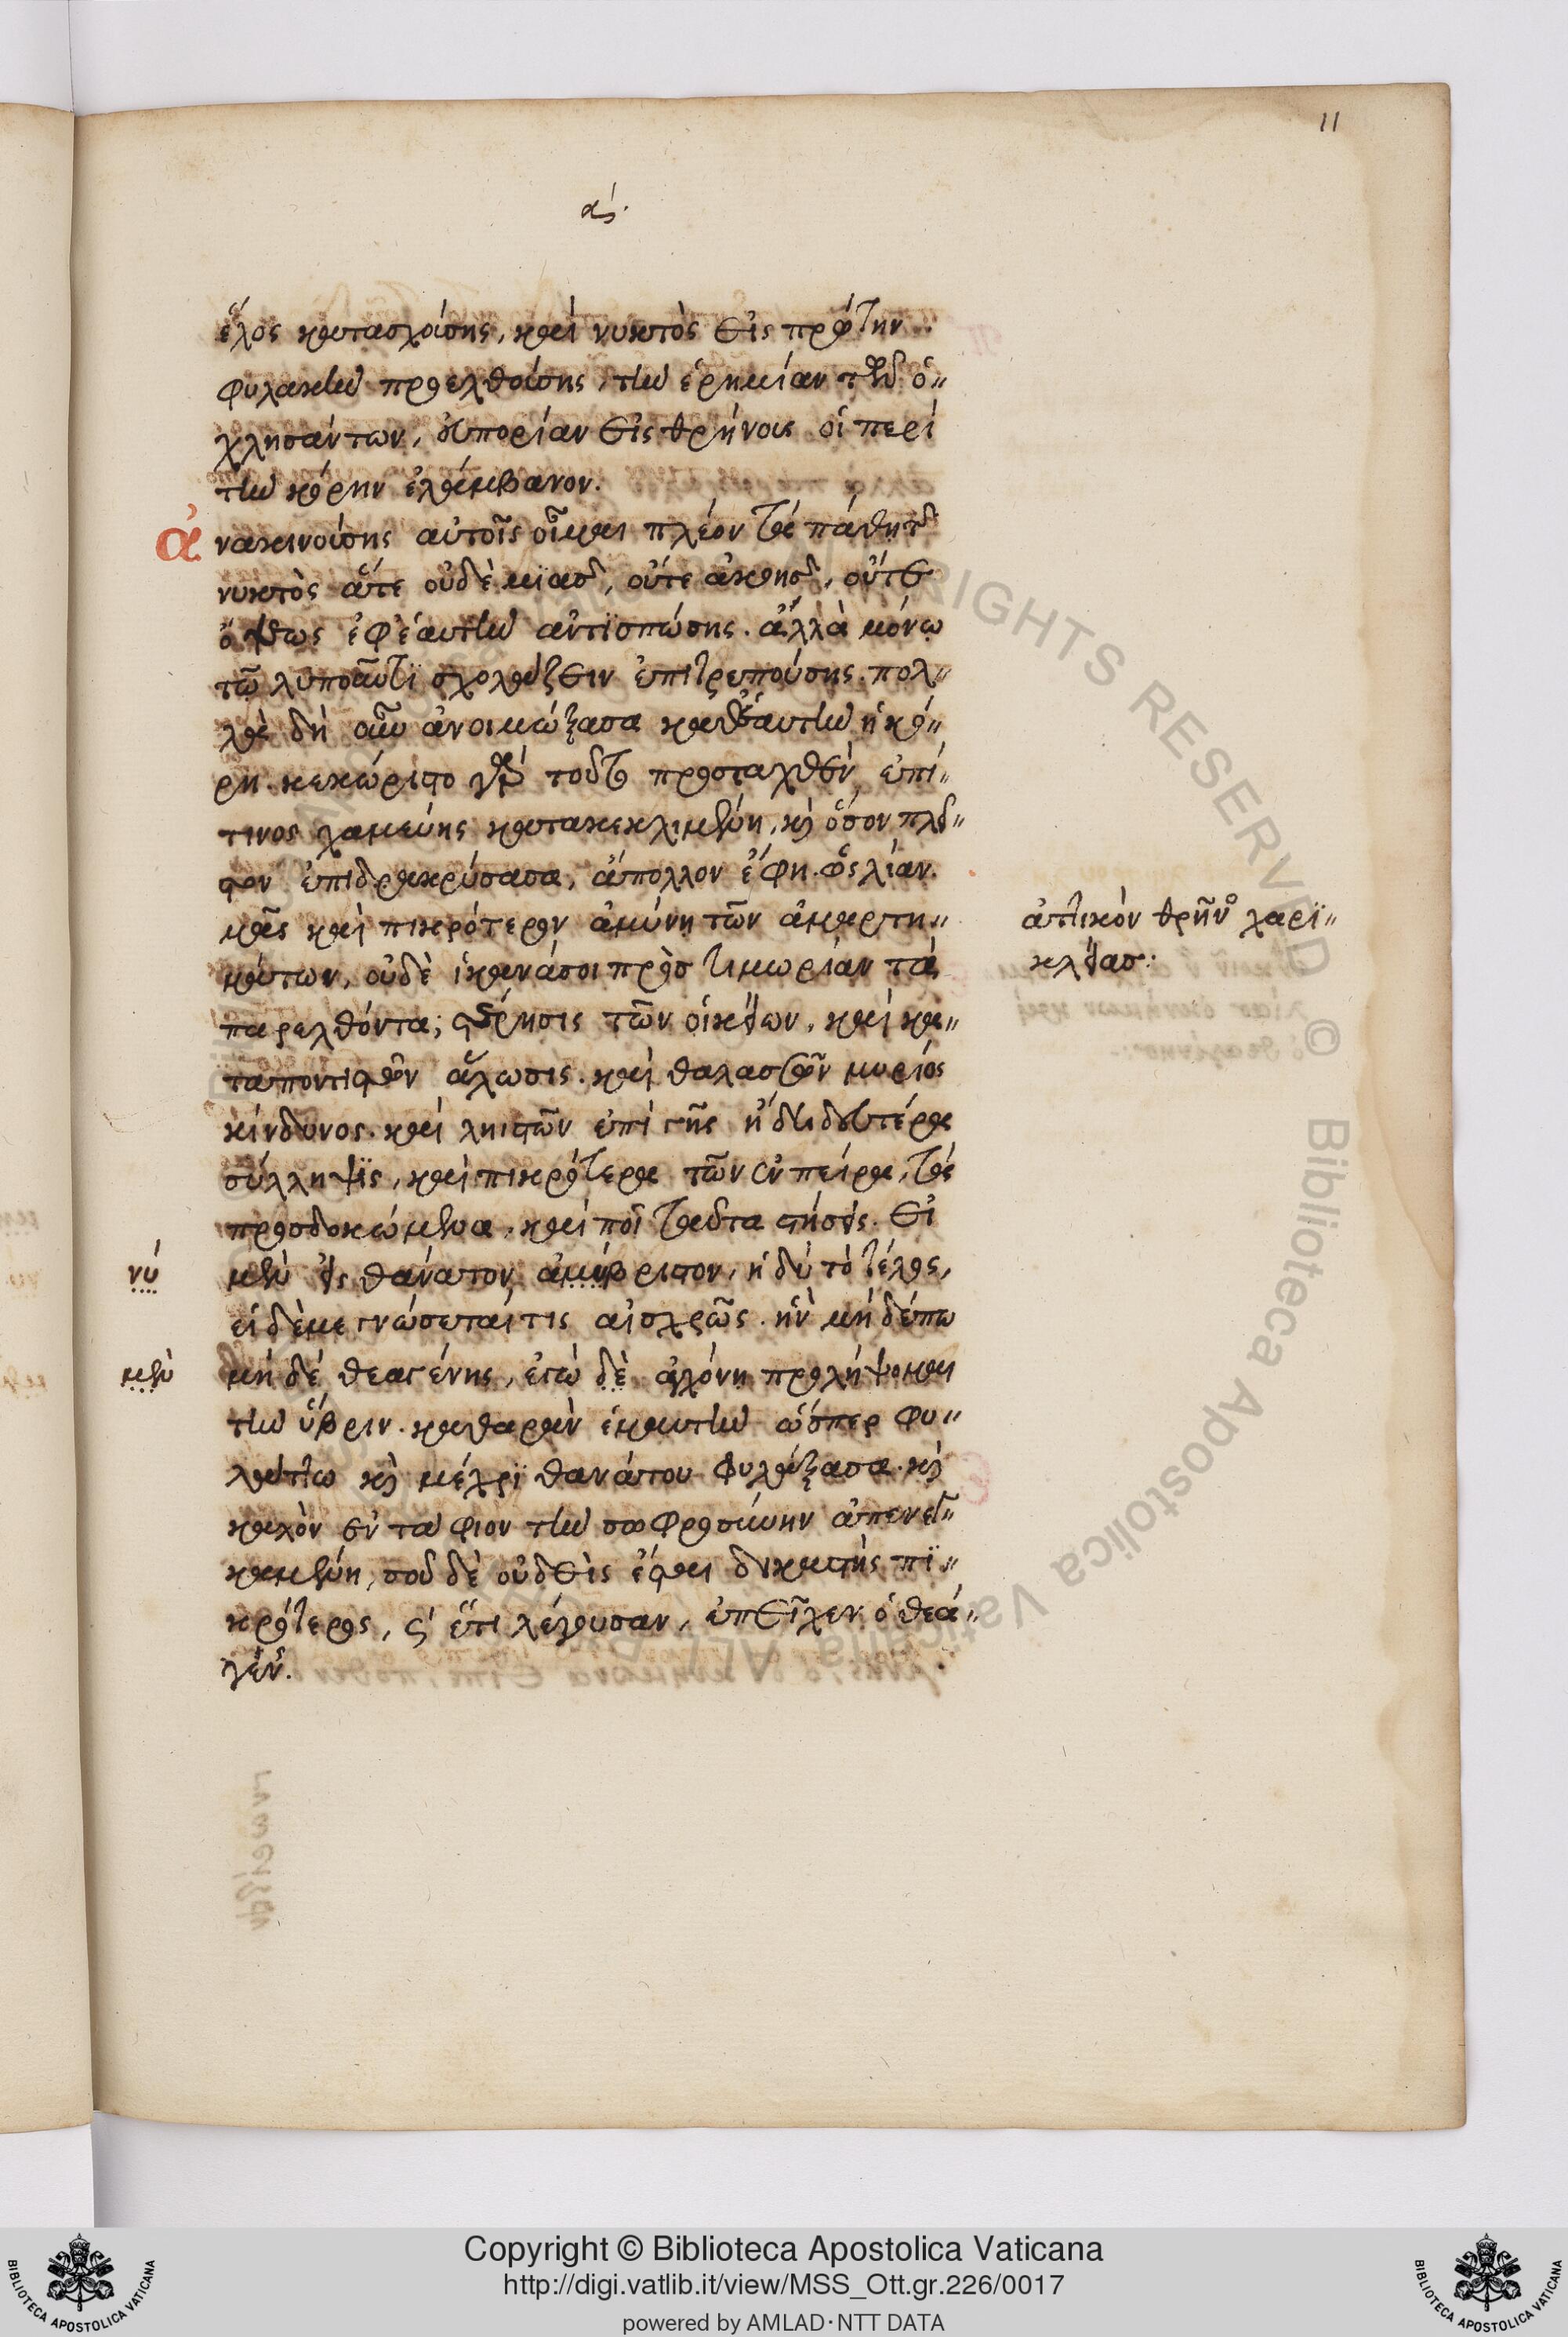 11
αος.
ἕλος κατασχούσης, καὶ νυκτὸς εἰς πρώτην
φυλακὴν προελθούσης, τὴν ἐρημίαν τῶν ὀ〃
χλησάντων, εὐπορίαν εἰς θρήνους οἱ περὶ
τὴν κόρην ἐλάμβανον.
ἀνακινούσης αὐτοῖς οἶμαι πλέον τὰ πάθη τῆς
νυκτὸς ἅτε οὐδὲ μϊᾶς, οὔτε ἀκοῆς, οὔτε
ὄψεως ἐφ' ἑαυτὴν ἀντϊσπώσης. ἀλλὰ μόνῳ
τῷ λυποῦντϊ σχολάζειν ἐπιτρεπούσης. πολ〃
λὰ δὴ οὖν ἀνοιμώξασα καθ' ἑαυτὴν ἡ κό〃
ρη. κεχώριστο γὰρ τοῦτο προσταχθέν, ἐπί〃
τινος χαμεύνης κατακεκλιμένη, καὶ ὅσον πλεῖ〃
στον ἐπιδακρύσασα, ἄπολλον ἔφη. ὡς λίαν
μᾶς καὶ πικρότερον ἀμύνῃ τῶν ἁμαρτη〃
μάτων, οὐδὲ ἱκανά σοι πρὸς τιμωρίαν τὰ
παρελθόντα; στέρησις τῶν οἰκείων, καὶ κα〃
ταποντιστῶν ἅλωσις. καὶ θαλασσῶν μυρίος
κίνδυνος. καὶ λῃστῶν ἐπὶ γῆς ἤδη δευτέρα
σύλληψϊς, καὶ πικρότερα τῶν ἐν πείρᾳ, τὰ
προσδοκώμενα. καὶ ποῖ ταῦτα στήσεις. εἰ
μὲν εἰς θάνατον ἀμύβριστον, ἡδὺ τὸ τέλος,
εἰ δέ με γνώσεταί τις αἰσχρῶς. ἣν μὴ δέπω
μὴ δέ θεαγένης, ἐγὼ δὲ ἀγχόνῃ προλήψομαι
τὴν ὕβριν. καθαρὰν ἐμαυτὴν ὥσπερ φυ〃
λάττω καὶ μέχρϊ θανάτου φυλάξασα. καὶ
καλὸν ἐντάφιον τὴν σωφροσύνην ἀπενεγ〃
καμένη, σοῦ δὲ οὐδεὶς ἔσται δικαστὴς πϊ〃
κρότερος, καὶ ἔτι λέγουσαν, ἐπεῖχεν ὁ θεά〃
γένης.
ἀττικὸν θρῆνος χαρϊ〃
κλείας:
νύ
μὲν
RIGHTS RESERVED © Biblioteca Apostolica Vaticana ALL
Copyright © Biblioteca Apostolica Vaticana
http://digi.vatlib.it/view/MSS_Ott.gr.226/0017
powered by AMLAD·NTT DATA
BIBLIOTECA APOSTOLICA VATICANA
BIBLIOTECA APOSTOLICA VATICANA